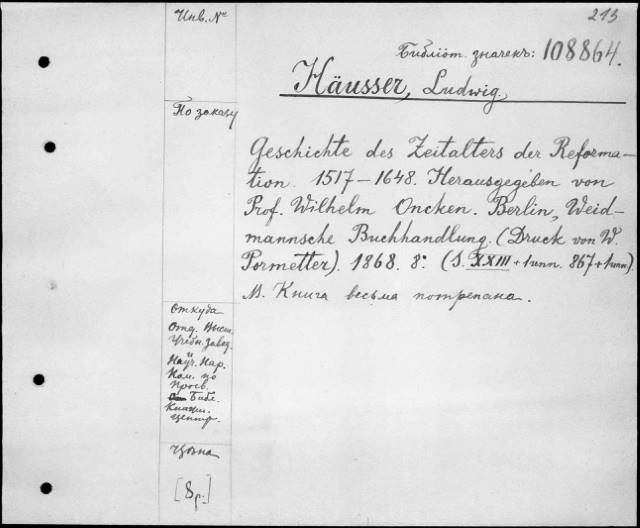 Инв. №
213
Библіот. значекъ: 108864.
Häusser, Ludwig.
По заказу
Geschichte des Zeitalters der Reforma-
tion. 1517–1648. Herausgegeben von
Prof. Wilhelm Oncken. Berlin, Weid-
mannsche Buchhandlung. (Druck von W.
Pormetter). 1868. 8.° (S. XXIII + 1 unn. 867 + 1 unn).
М. Книга весьма потрепана.
Откуда
Отд. Высш.
Учебн. Завед.
и
Науч. Нар.
Ком. по
Просв.
Библ.
Книжн.
центр.
Цѣна
[8 р.]